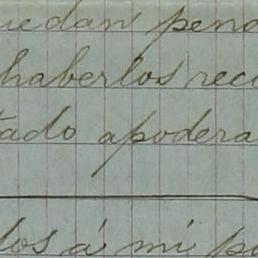 uedan pend
haberlos reco
tado apodera
dos á mi po